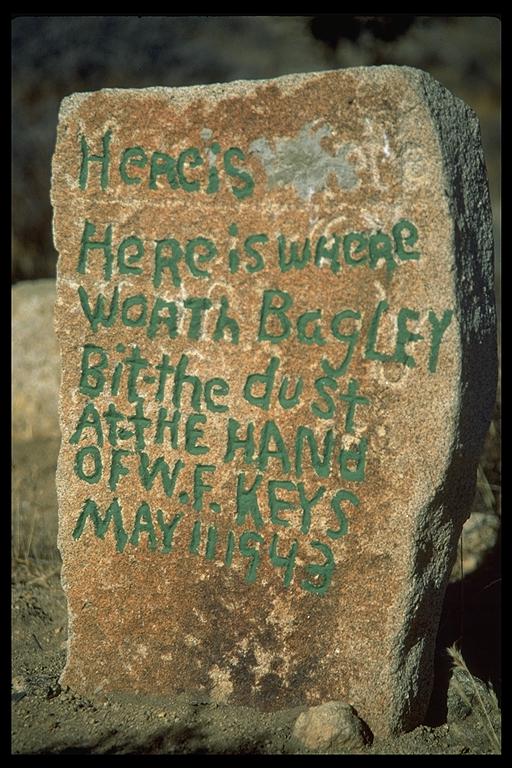 Here is
Here is where
Worth Bagley
Bit the dust
At the HANd
OF W.F. KEYS
MAY 11 1943